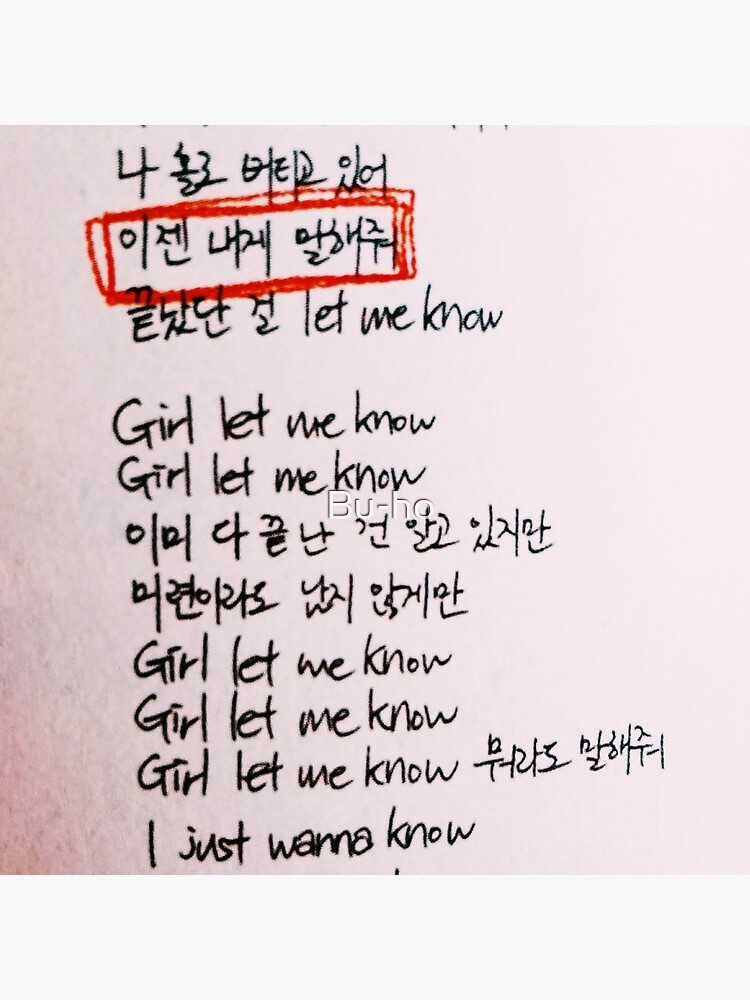 나 홀로 버티고 있어
이젠 내게 말해줘
끝났단 걸 let me know
Girl let me know
Girl let me know
Bu-ho
이미 다 끝난 건 알고 있지만
미련이라도 남지 않게만
Girl let me know
Girl let me know
Girl let me know 뭐라도 말해줘
I just wanna know